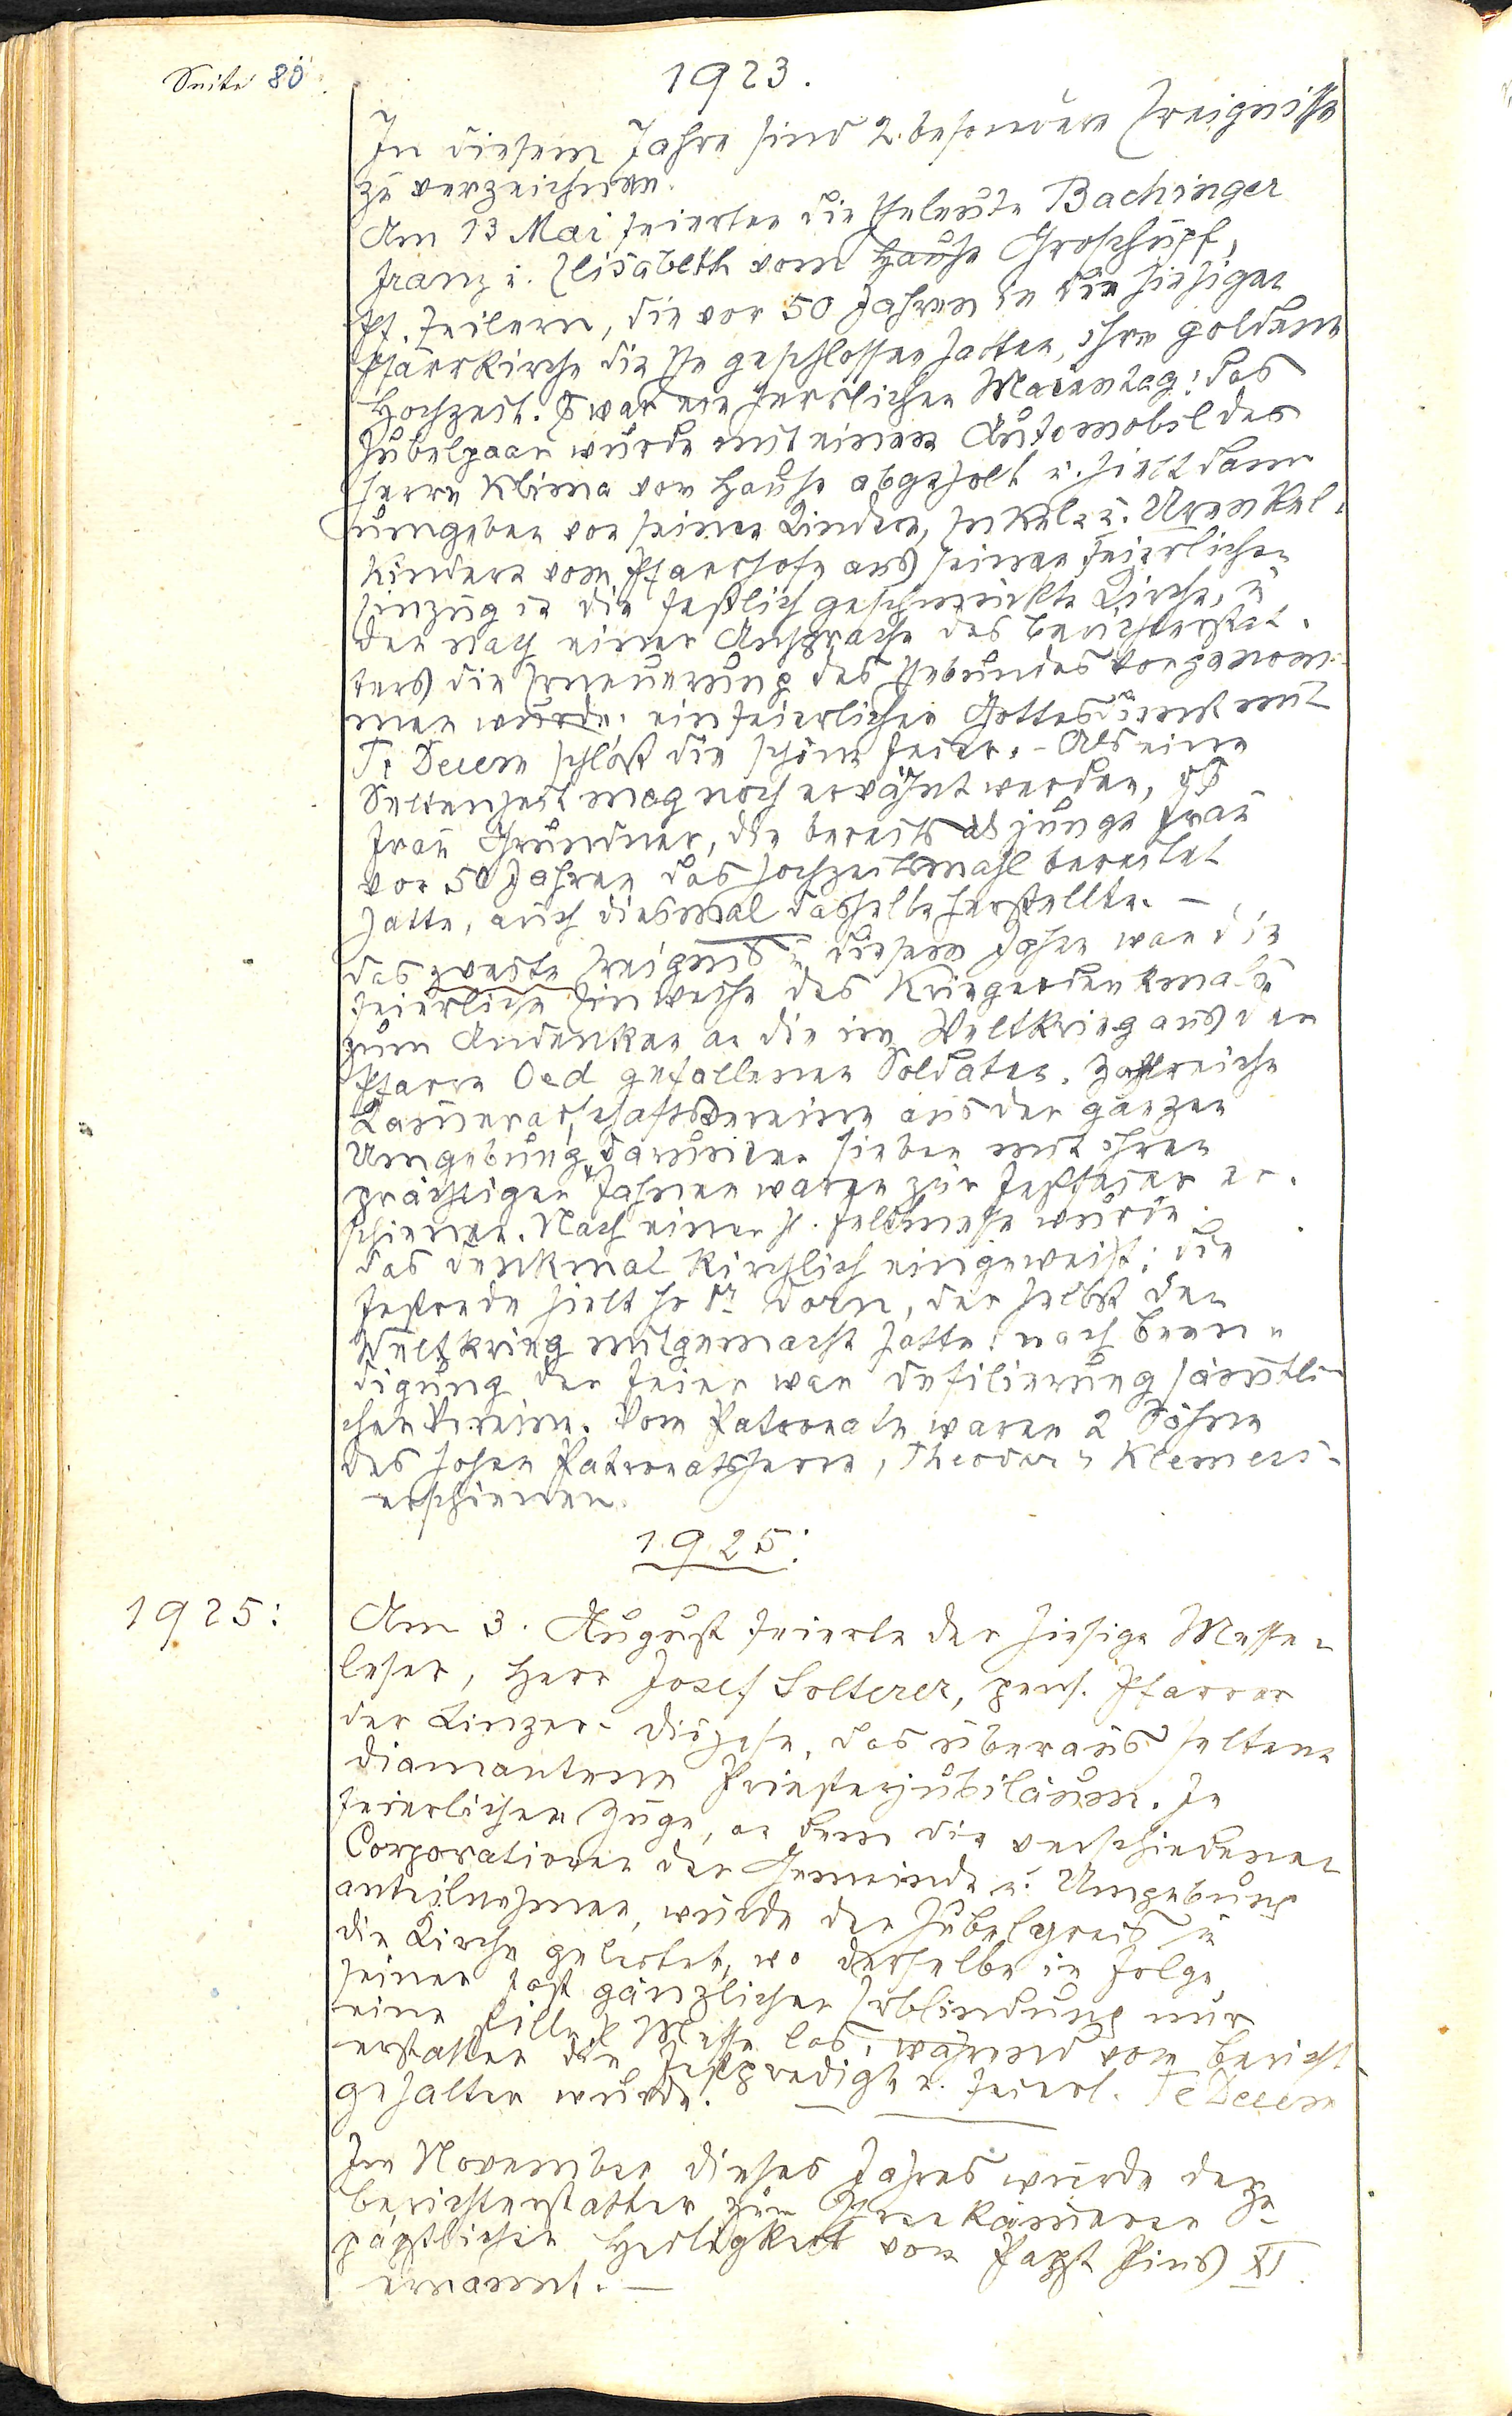 Seite 80.
1923.
In diesem Jahre sind 2. besondere Ereignisse
zu verzeichnen.
Am 13 Mai feierten die Eheleute Bachinger
Franz u. Elisabeth vom Hause Groschupf,
Pf. Zeilern, die vor 50 Jahren in der hiesigen
Pfarrkirche die Ehe geschlossen hatten, ihre goldene
Hochzeit. Es war ein herrlicher Maientag; das
Jubelpaar wurde mit einem Automobil des
Herrn Klima von Hause abgeholt u. hielt dann
umgeben von seinen Kindern, Enkel u. Urenkel-
kindern vom Pfarrhofe aus seinen feierlichen
Einzug in die festlich geschmückte Kirche, u
der nach einer Ansprache des Berichterstat-
ters die Erneuerung des Ehebundes vorgenom-
men wurde; ein feierlicher Gottesdienst mit
Te Deum schloß die schöne Feier. - Als eine
Seltenheit mag noch erwähnt werden, daß
Frau Gründner, die bereits als junge Frau
vor 50 Jahren das Hochzeitsmahl bereitet
hatte, auch diesmal dasselbe herstellte. -
Das zweite Ereignis in diesem Jahre war die
feierliche Einweihe des Kriegerdenkmals
zum Andenken an die im Weltkrieg aus der
Pfarre Oed gefallenen Soldaten. Zahlreiche
Kameradschaftsvereine aus der ganzen
Umgebung, darunter sieben mit ihren
prächtigen Fahnen waren zur Festfeier er-
schienen. Nach einer hl. Feldmesse wurde
das Denkmal kirchlich eingeweiht; die
Festrede hielt Hr Dr Dorn, der selbst den
Weltkrieg mitgemacht hatte; nach Been-
digung der Feier war Defilierung sämtli-
cher Vereine. Vom Patronate waren 2 Söhne
des hohen Patronatsherrn, Theodor u Klemens
erschienen.
1925:
1925:
Am 3. August feierte der hiesige Messe-
leser, Herr Josef Solterer, pens. Pfarrer
der Linzer-Diözese, das überaus seltene
diamantene Priesterjubiläum. In
feierlichem Zuge, an dem die verschiedenen
Corporationen der Gemeinde u. Umgebung
anteilnehmen, wurde der Jubelgreis in
die Kirche geleitet, wo derselbe in Folge
seiner fast gänzlichen Erblindung nur
eine stille hl Messe las, während vom Bericht
erstatter die Festpredigt u. feierl. Te Deum
gehalten wurde.
Im November dieses Jahres wurde der
Berichterstatter zum Kämmerer Sr
päpstlichen Heiligkeit von Papst Pius XI.
ernannt. -